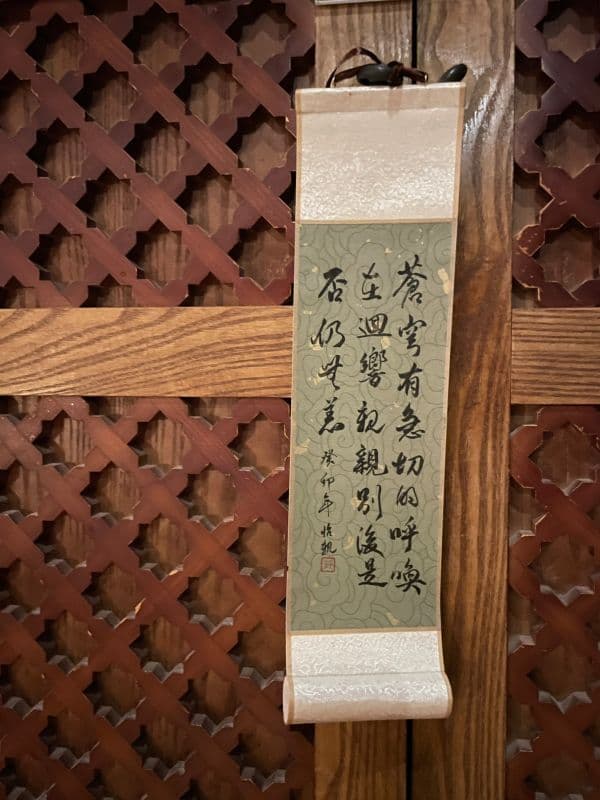 蒼穹有急切的呼喚
在迴響親親別後是
否仍無恙
癸卯年